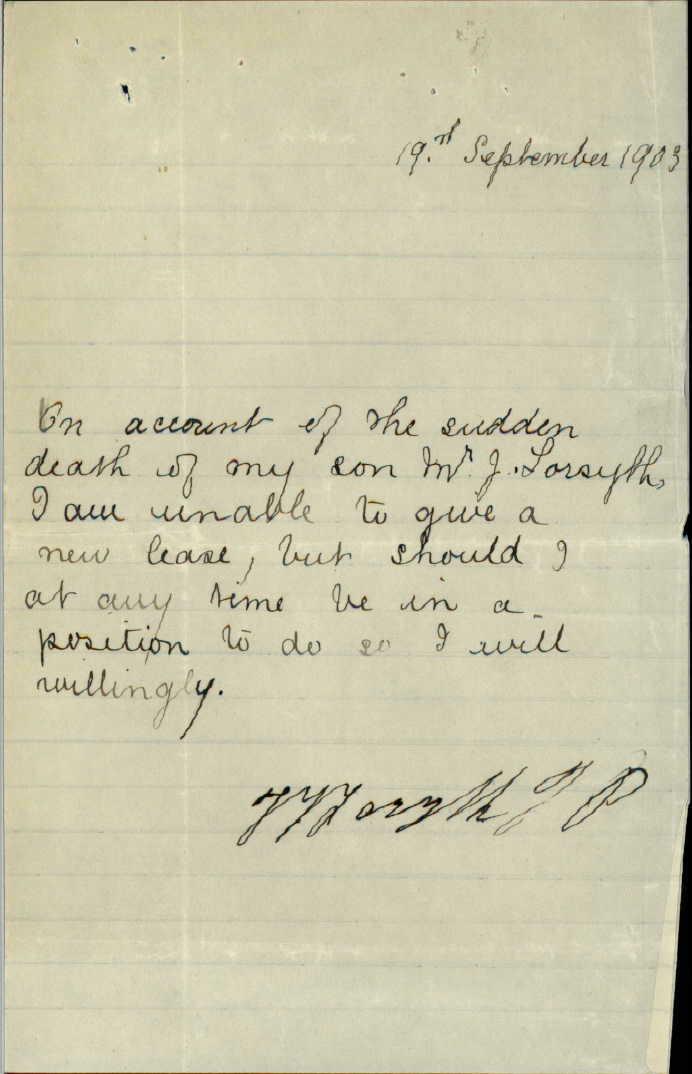 19.th September 1903
On account of the sudden
death of my son Mr. J. Forsyth,
I am unable to give a
new lease, but should I
at any time be in a
position to do so I will
willingly.
Forsyth J P